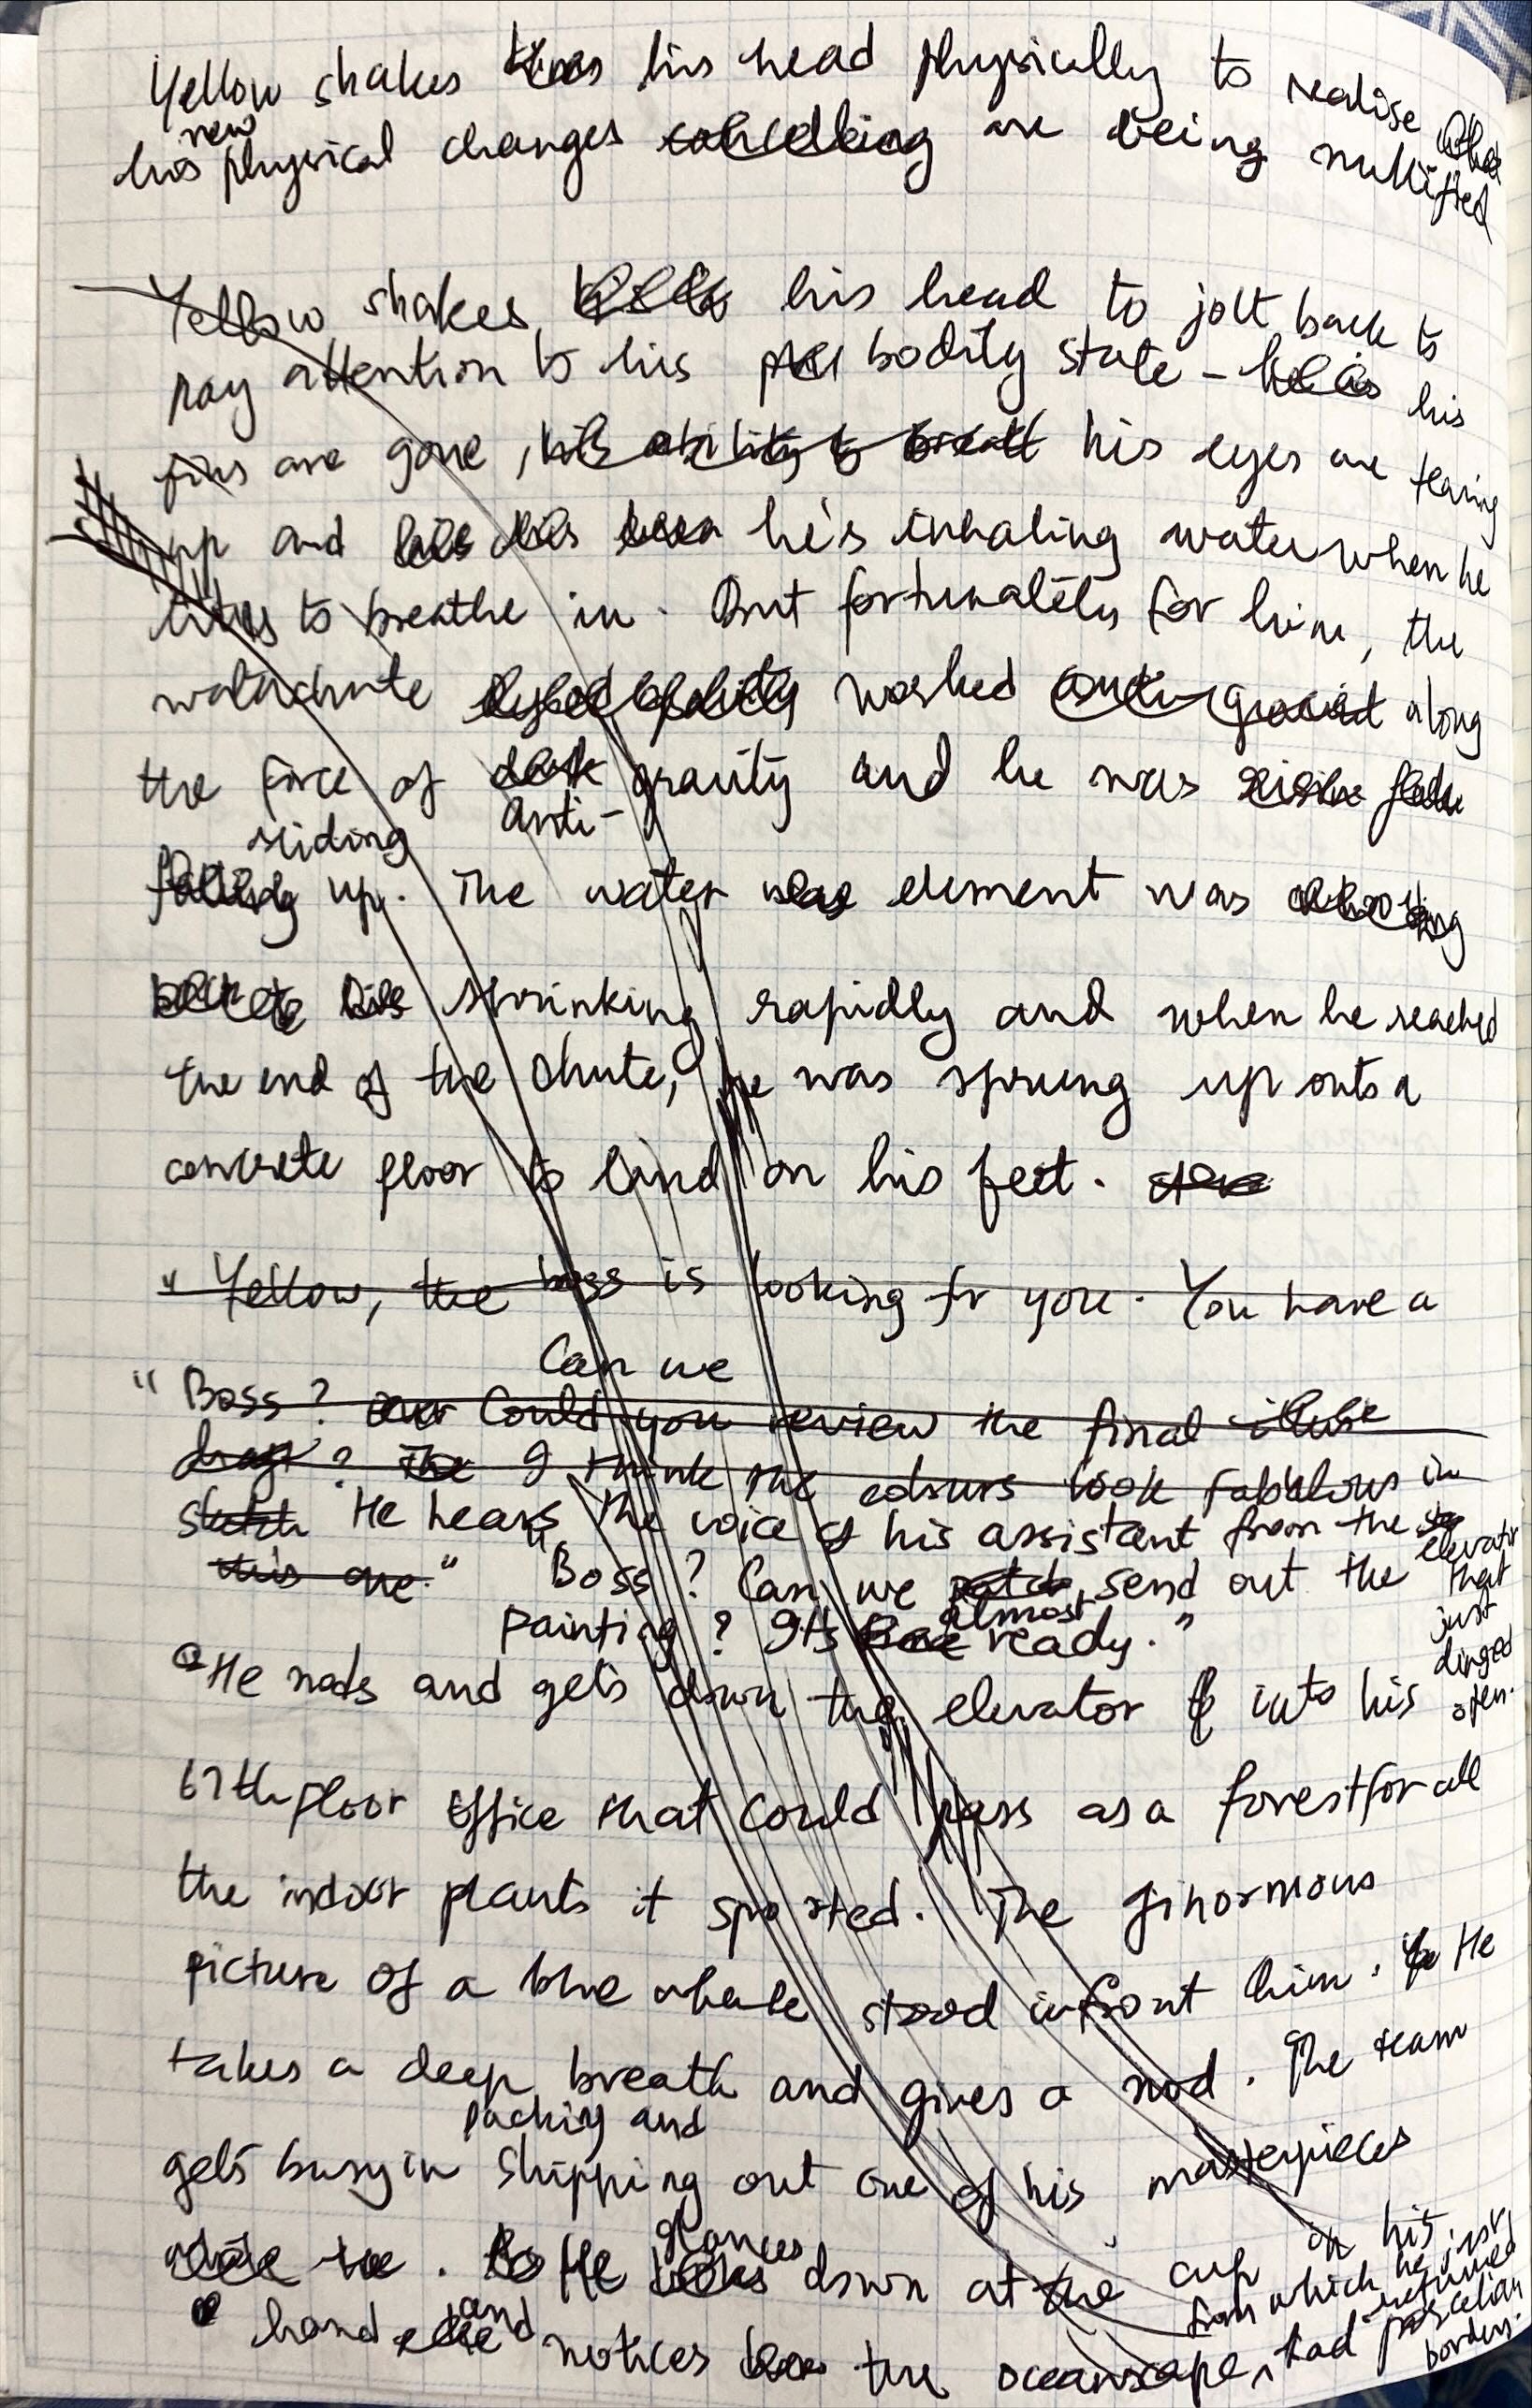 Yellow shakes his head physically to realise that
new
his physical changes cancelling are being nullified
Yellow shakes his head to jolt back to
pay attention to his bodily state - he is his
fins are gone, his ability to breath his eyes are tearing
up and he's inhaling water when he
tries to breathe in. But fortunately for him, the
waterchute worked anti-gravit along
the force of dark gravity and he was
sliding anti-
falling up. The water was element was
shrinking rapidly and when he reached
the end of the chute, he was sprung up onto a
concrete floor to land on his feet.
" Yellow, the boss is looking for you. You have a
Can we
"Boss? Could you review the final
draft? The I think the colours look fabulous in
sketch He hears the voice of his assistant from the elevator that just dinged open.
this one." "Boss? Can we send out the
almost
painting? Its ready."
He nods and gets down the elevator into his
67th floor office that could pass as a forest for all
the indoor plants it sported. The ginormous
picture of a blue whale stood infront him. He
takes a deep breath and gives a nod. The team
packing and
gets busy in shipping out one of his masterpieces
glances
He looks down at the cup in his
hand and notices the oceanscape, from which he just returned had porcelain borders.